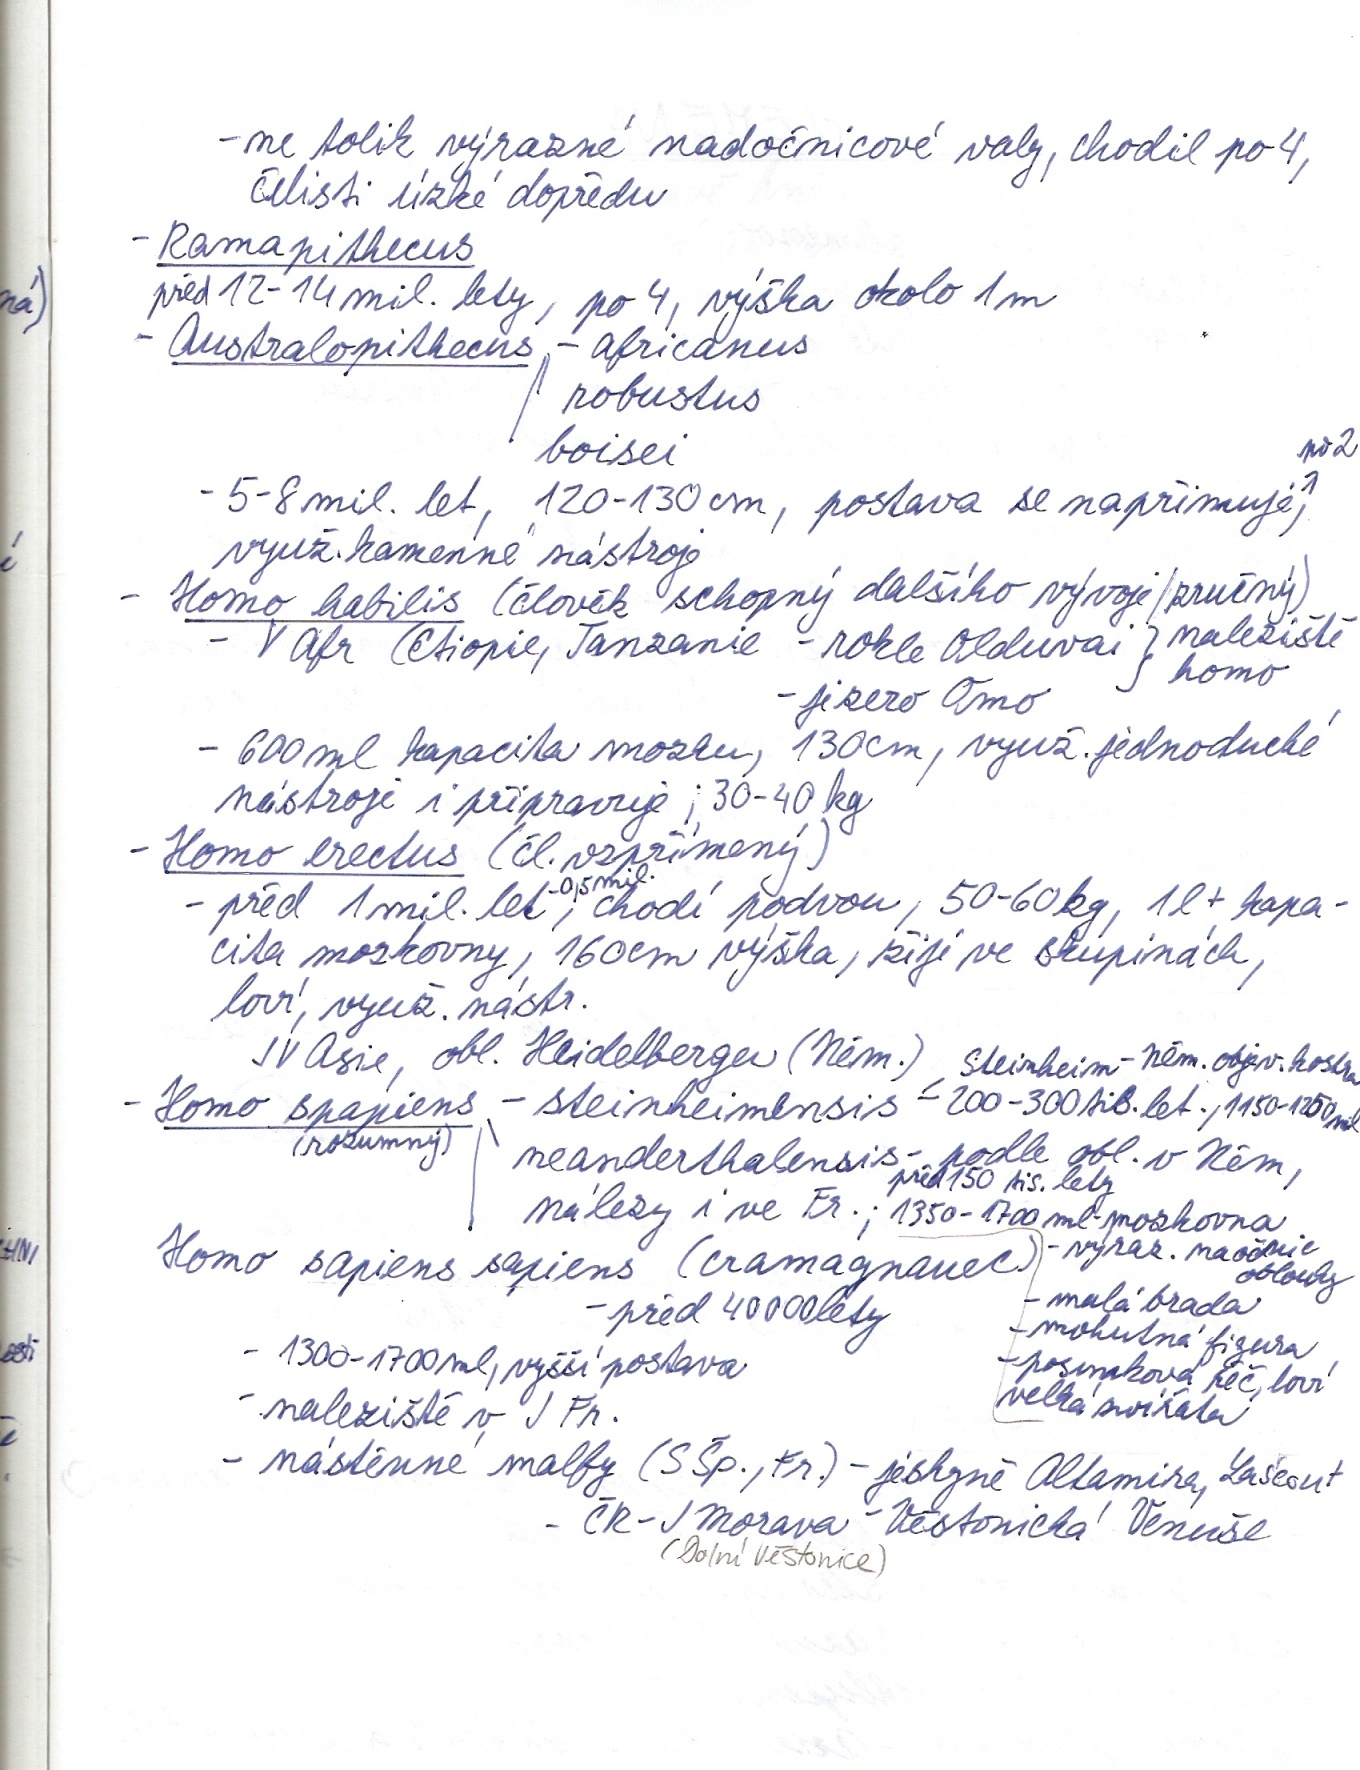 - ne tolik výrazné nadočnicové valy, chodil po 4,
čelisti úzké dopředu
- Ramapithecus
před 12-14 mil. lety, po 4, výška okolo 1 m
- Australopithecus - africanus
robustus
boisei
po 2
- 5-8 mil. let, 120-130 cm, postava se napřimuje,
využ. kamenné nástroje
- Homo habilis (člověk schopný dalšího vývoje/zručný)
- V Afr (Etiopie, Tanzanie - rokle Olduvai } naleziště
homo
- jezero Omo
- 600 ml kapacita mozku, 130 cm, využ. jednoduché
nástroje i připravuje; 30-40 kg
- Homo erectus (čl. vzpřímený)
-0,5 mil.
- před 1 mil. let, chodí po dvou, 50-60 kg, 1 l + kapa-
cita mozkovny, 160 cm výška, žijí ve skupinách,
loví, využ. nástr.
JV Asie, obl. Heidelbergu (Něm.)
Steinheim - Něm. objev. kostra
- Homo spapiens - steinheimensis - 200-300 tis. let., 1150-1250 ml
(rozumný)
neanderthalensis - podle obl. v Něm,
před 150 tis. lety
nálezy i ve Fr.; 1350-1700 ml-mozkovna
Homo sapiens sapiens (cramagnanec)
- výraz. naočnic
oblouky
- před 40000 lety
- malá brada
- mohutná figura
- 1300-1700 ml, vyšší postava
- posunková řeč, loví
velká zvířata
- naleziště v J Fr.
- nástěnné malby (S Šp., Fr.) - jeskyně Altamira, Lascout
- ČR - J Morava - Věstonická Venuše
(Dolní Věstonice)